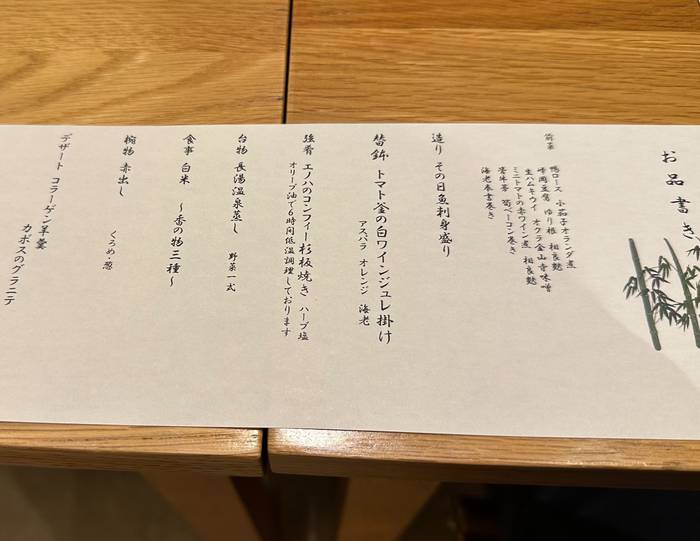 お品書き
前菜
鴨ロース 小茄子オランダ煮
峰岡豆腐 ゆり根 相良麩
生ハムキウイ オクラ金山寺味噌
ミニトマトの赤ワイン煮 相良麩
筍ベーコン巻き
海老奉書巻き
造り その日魚刺身盛り
替鉢 トマト釜の白ワインジュレ掛け
アスパラ オレンジ 海老
強肴 エノハのコンフィー杉板焼き ハーブ塩
オリーブ油で6時間低温調理しております
台物 長湯温泉蒸し 野菜一式
食事 白米 〜香の物三種〜
椀物 赤出し くろめ・葱
デザート コラーゲン羊羹
カボスのグラニテ